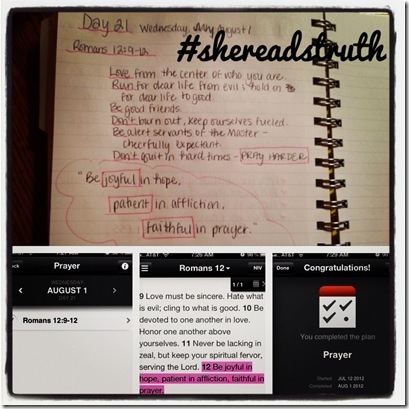 Day 21 Wednesday, August 1
#shereadstruth
Romans 12:9-12
Love from the center of who you are.
Run for dear life from evil; hold on
for dear life to good.
Be good friends.
Don't burn out, keep ourselves fueled.
Be alert servants of the Master -
cheerfully expectant.
Don't quit in hard times - PRAY HARDER
"Be joyful in hope,
patient in affliction,
faithful in prayer."
7:27 AM
Prayer
WEDNESDAY
AUGUST 1
DAY 21
Romans 12:9-12
7:26 AM
Romans 12
NIV
1/1
9 Love must be sincere. Hate what
is evil; cling to what is good. 10 Be
devoted to one another in love.
Honor one another above
yourselves. 11 Never be lacking in
zeal, but keep your spiritual fervor,
serving the Lord. 12 Be joyful in
hope, patient in affliction, faithful in
prayer.
7:29 AM
Done
Congratulations!
You completed the plan
Prayer
Started JUL 12 2012
Completed AUG 1 2012